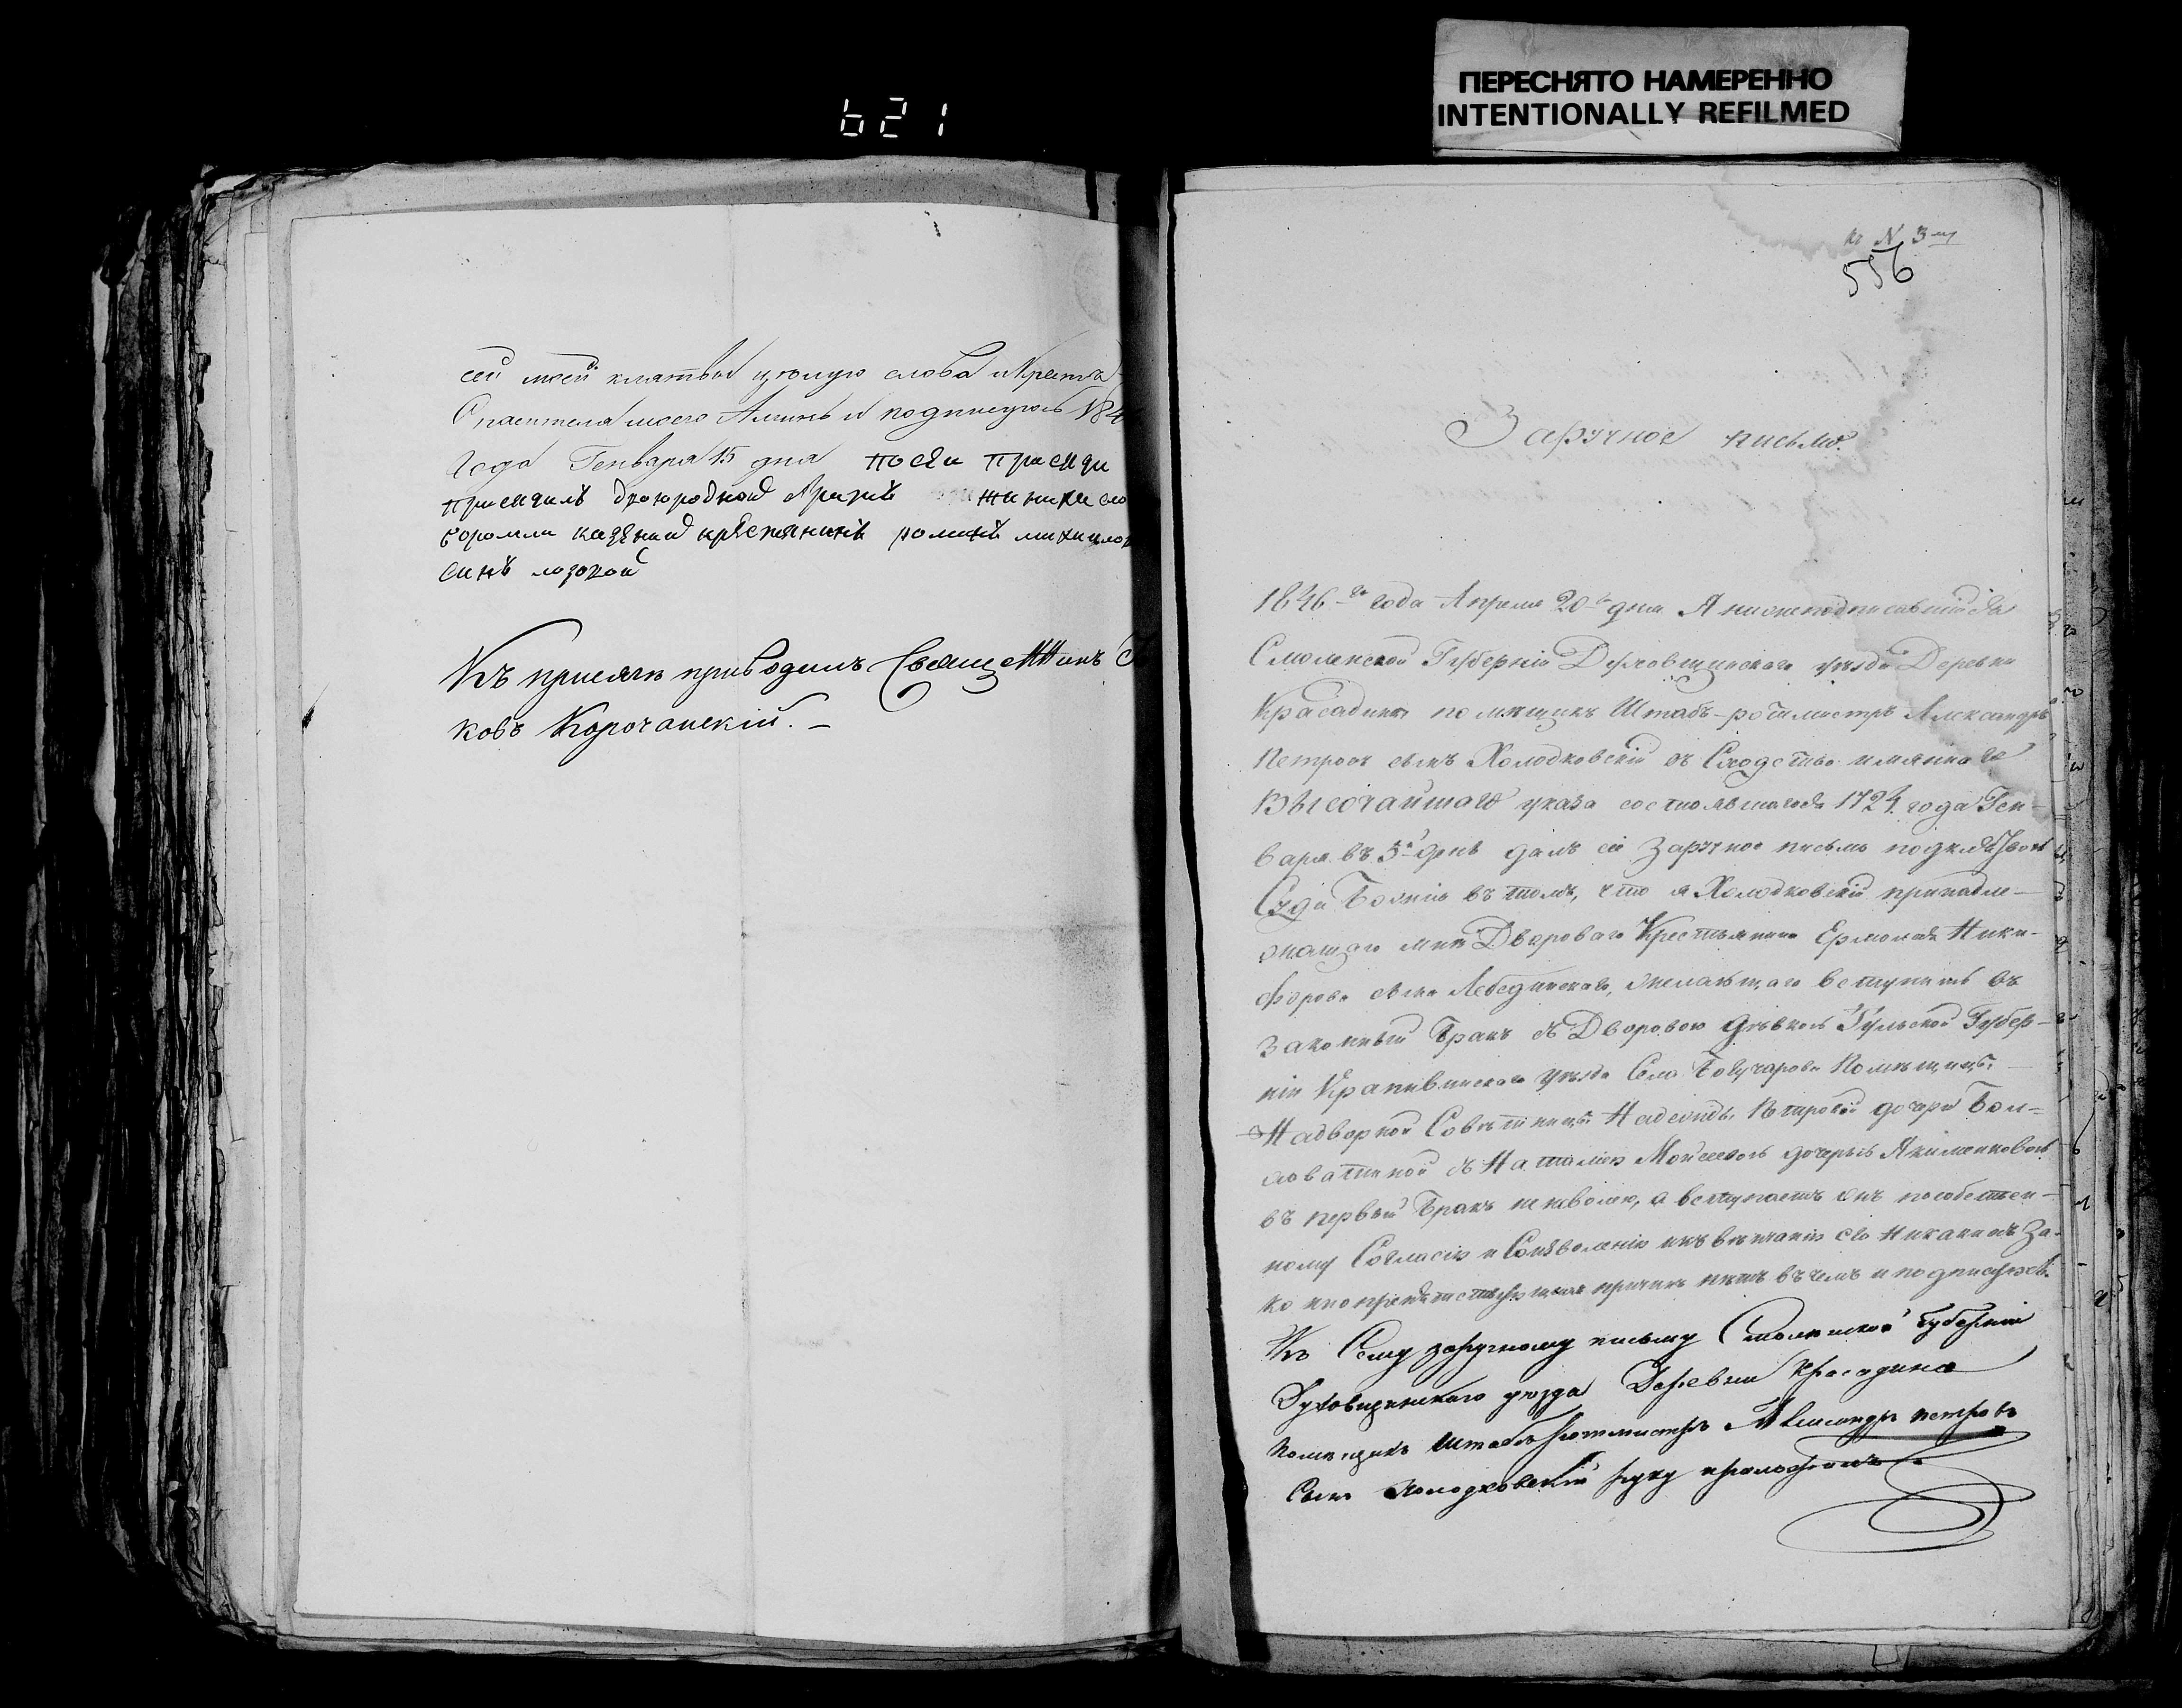 621
ПЕРЕСНЯТО НАМЕРЕННО
INTENTIONALLY REFILMED
сей моей клятвы цѣлую слова и Креста
Спасителя моего Аминь и подпишусь 184
Года Генваря 15 дня посѣи присиди
присидилъ
боромли казѣной крѣстянинъ романъ михаилов
синъ лозовой
Къ присягѣ приводилъ Священникъ
ковъ Корочанскій. –
къ N 3му
556
Заручное письмо.
1846-го года Апреля 20-го дня Я нижеподписавшійся
Смоленской Губерніи Духовщинскаго уѣзда Деревни
Красадина помѣщикъ Штабъ-ротмистръ Александръ
Петровъ сынъ Холодковскій въ Сходство имяннаго
Высочайшаго указа состоявшагося 1724 года Ген-
варя въ 5й день далъ сіе Заручное письмо подклятвою
Суда Божія въ томъ, что я Холодковскій принадле-
жащаго мнѣ Двороваго Крестьянина Ермолая Ники-
форова сына Лебединскаго, желающаго вступить въ
Законный Бракъ съ Дворовою дѣвкою Тульской Губер-
ніи Крапивинскаго уѣзда Села Помѣщицы
Надворной Совѣтницы Надежды Петровой дочери Бол-
съ Наталіею Моисеевою дочерью Якименковою
въ первый Бракъ неневолею, а вступаетъ онъ пособствен-
ному Согласію и Соизволенію икъ вѣнчанію его Никакихъ За-
конопрепятствующихъ причинъ нетъ въ чемъ и подписуюсь.
Къ Сему заручному письму Смоленской Губерніи
Духовщинскаго уезда Деревни Красадина
Помѣщикъ Штабъ Ротмистръ Александръ Петровъ
Сынъ Холодковскій руку приложилъ